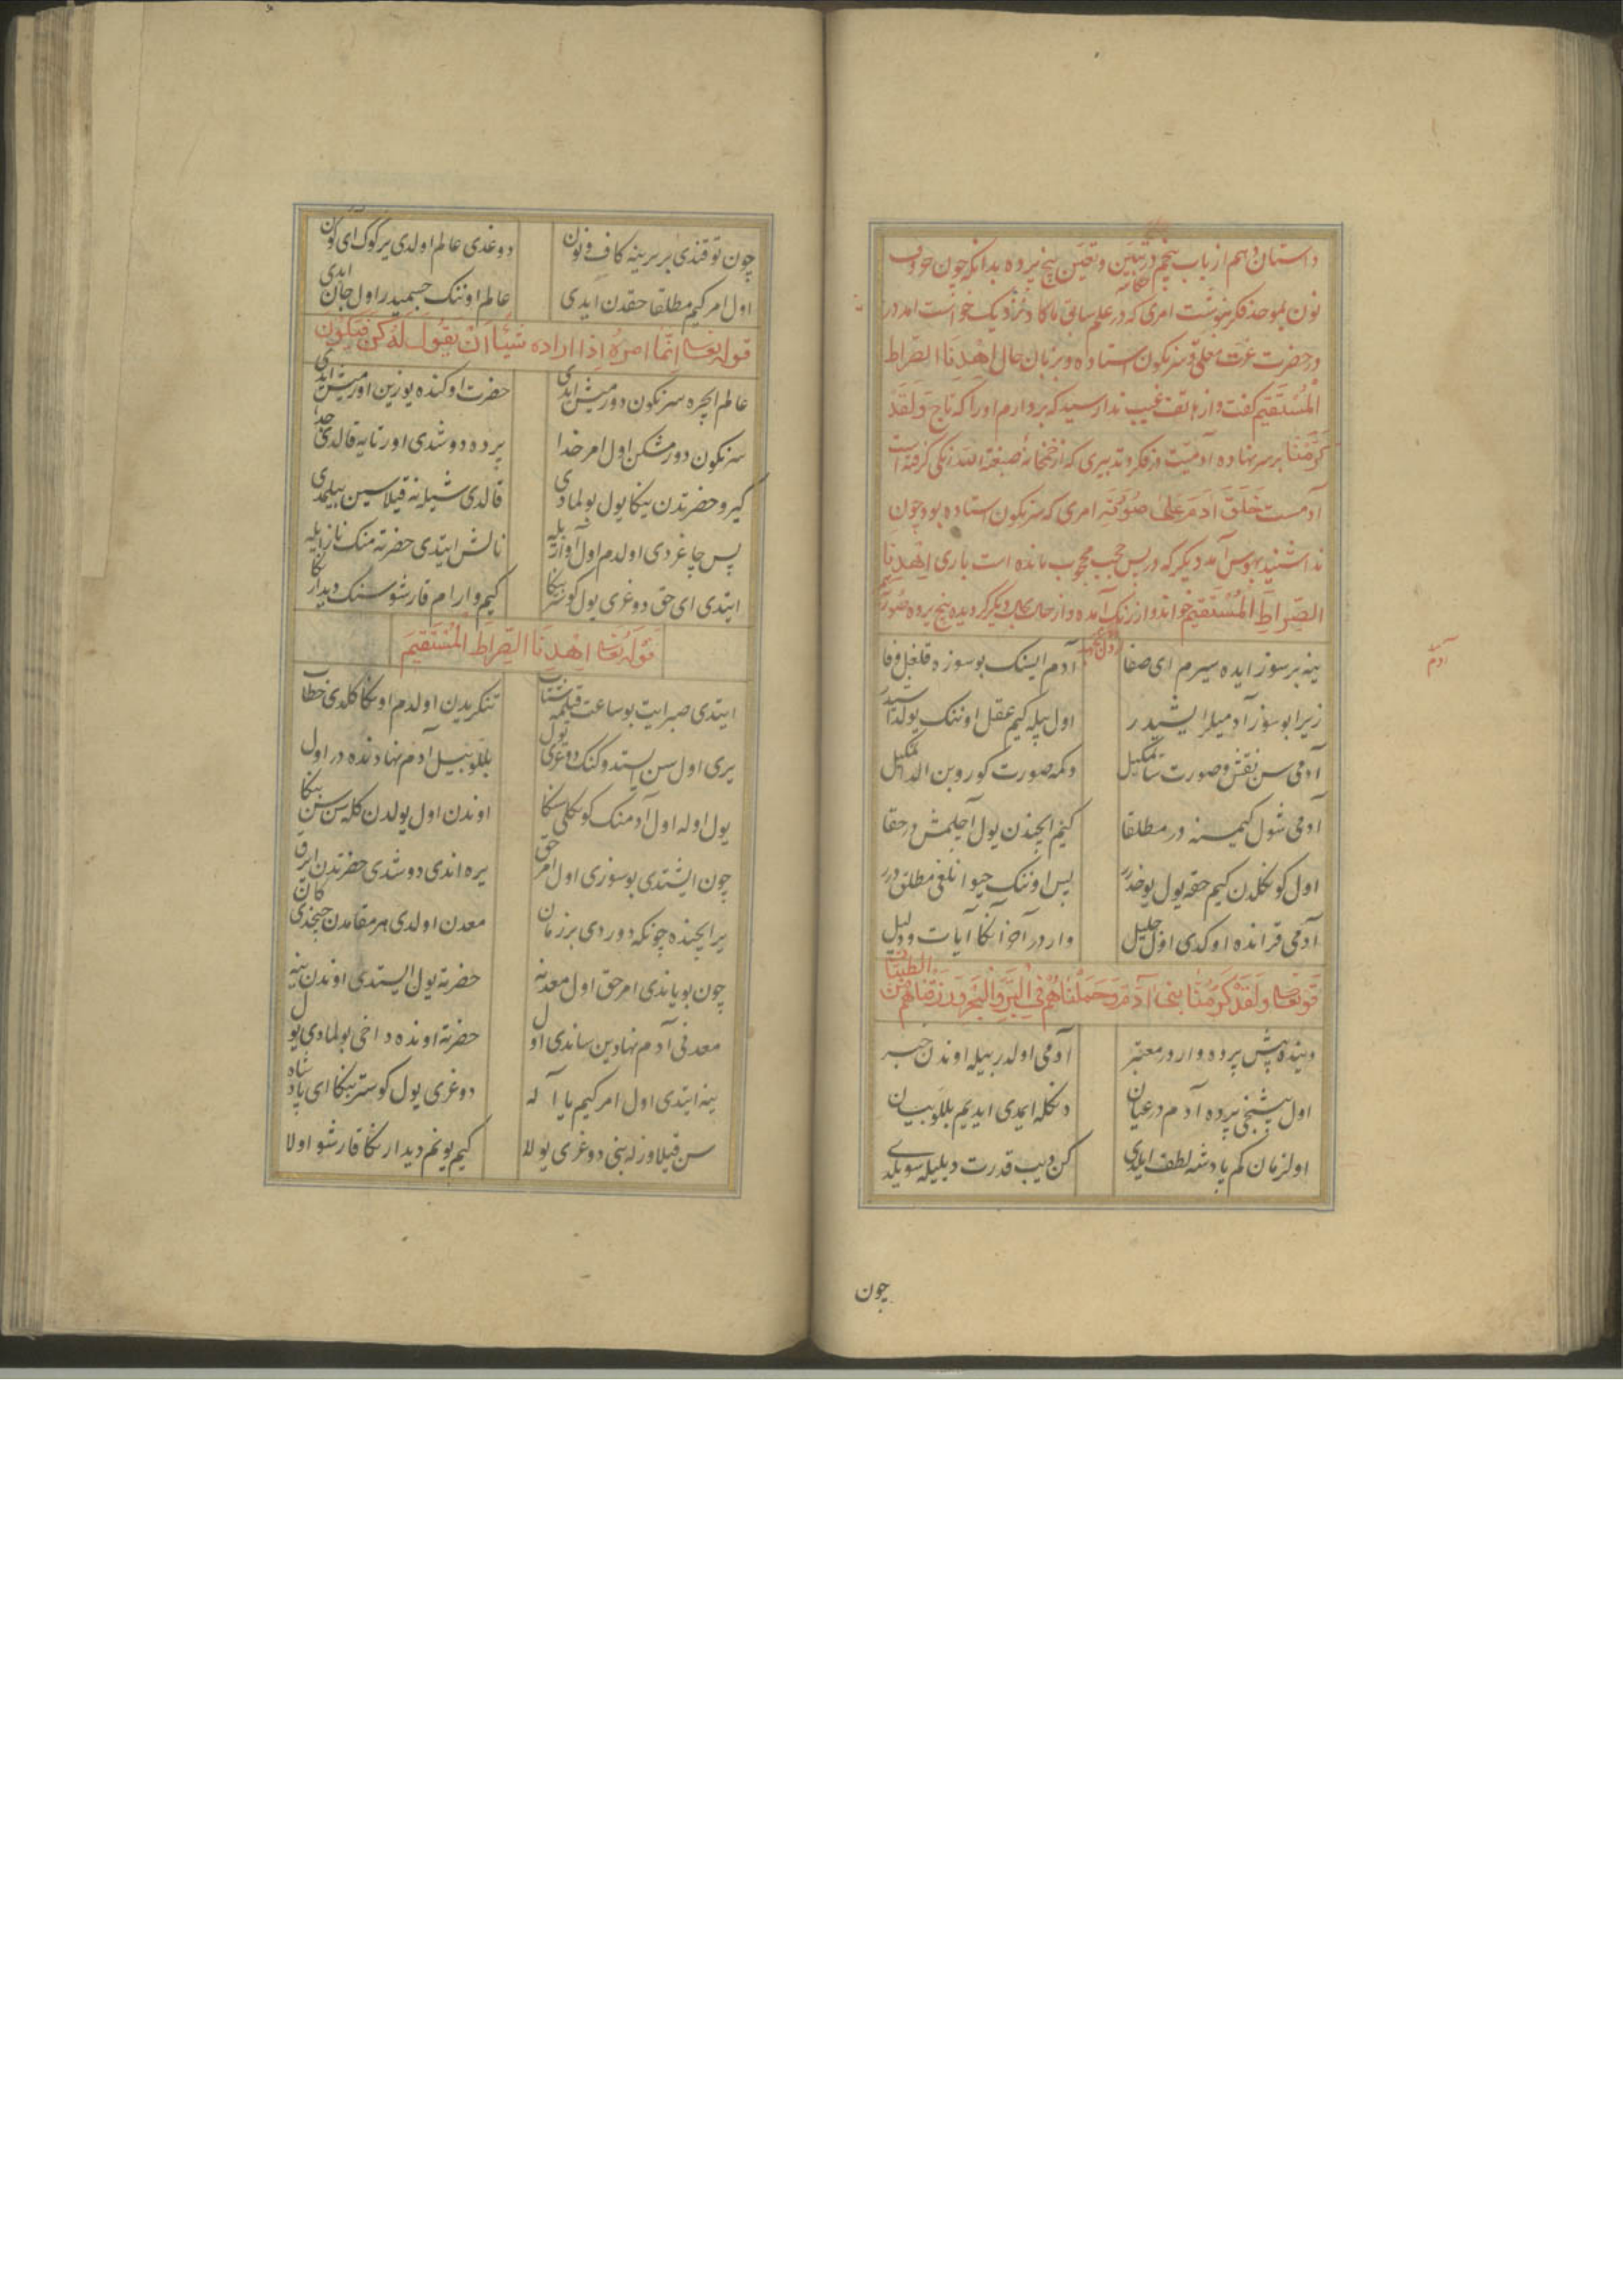 داستان دهم از باب پنجم در تبیین و تعیین پنج پرده بدانکه چون حروف
نون بموحد فکر بنوشت امری که در علم سابق ما کا د نزدیک خواست آمد در
در حضرت عزت معلی و سرنکون استاده و بزبان حال اِهْدِنَا الصِّرَاطَ
الْمُسْتَقِیمَ کفت و از هاتف غیب ندا رسید که بردارم او را که تاج وَلَقَدْ
کَرَّمْنَا بر سر نهاده آدمیت از فکر و تدبیری که از خمخانهٔ صبغة الله رنکی کرفته است
آدمست خَلَقَ آدَمَ عَلی صُورَتِهِ امری که سرنکون استاده بود چون
ندا شنید بهوس آمد دیکر که در پس حجب محجوب مانده است باری اِهْدِنَا
الصِّرَاطَ الْمُسْتَقِیمَ خواند و از رنک آمده و از حالی بحالی دیکر کردیده پنج پرده
ینه بر سوز ایده سیرم ای صفا آدم ایسنک بو سوزه قلغل وفا
زیرا بو سوز آدمیلر ایشیدر اول بیله کیم عقل اوننک یولداشیدر
آدمی سن نقش و صورت سانمکیل دکمه صورت کوروبن الدانمکیل
آدمی شول کیمسنه در مطلقا کیم ایچندن یول آچلمش در حقا
اول کوکلدن کیم حقه یول یوخدرر بس اوننک حیوانلغی مطلق درر
آدمی قرانده اوکدی اول جلیل وار در آخر آنکا آیات و دلیل
قوله تعالی وَلَقَدْ کَرَّمْنَا بَنی آدَمَ وَحَمَلْنَاهُمْ فِی الْبَرِّ وَالْبَحْرِ وَرَزَقْنَاهُمْ مِنَ الطَّیِّبَاتِ
دینده بیش پرده وار در معتبر آدمی اولدر بیله اوندن خبر
اول بیشنجی پرده آدم در عیان دنکله ایمدی ایدیم بللو بیان
اولزمان کم پادشه لطف ایلدی کن دیب قدرت دیلیله سویلدی
چون
چون توقندی بر برینه کاف و نون دوغدی عالم اولدی یر کوک ای کون
اول امر کیم مطلقا حقدن ایدی عالم اوننک جسمیدر اول جان ایدی
قوله تعالی اِنَّمَا اَمْرُهُ اِذَا اَرَادَ شَیْئًا اَنْ یَقُولَ لَهُ کُنْ فَیَکُونُ
عالم ایچره سرنکون دورمیش ایدی حضرت اوکنده یوزین اورمیش ایدی
سرنکون دورمشکن اول امر خدا پرده دوشدی اورتایه قالدی جدا
کیرو حضرتدن ینکا یول بولمادی قالدی شیله نه قیلاسین بیلمدی
پس چاغردی اولدم اول آواز یله نالش ایتدی حضرته منک ناز یله
ایتدی ای حق دوغری یول کوستر بنکا کیم وارام قارشو سنک دیدارنکا
قوله تعالی اِهْدِنَا الصِّرَاطَ الْمُسْتَقِیمَ
ایتدی صبر ایت بو ساعت قیلمه شتاب تنکریدن اولدم اونکا کلدی خطاب
یری اول سن ایستدوکنک دوغری یول بللو بیل آدم نهادنده در اول
یول اوله اول آدمنک کونکلی سنکا اوندن اول یولدن کله سن سن بنکا
چون ایشتدی بو سوزی اول امر حق یره اندی دوشدی حضرتدن ایرق
یر ایچنده چونکه دوردی بر زمان معدن اولدی هر مقامدن چیخدی کان
چون بویاندی امر حق اول معدنه حضرته یول ایستدی اوندن ینه
معدنی آدم نهادین ساندی اول حضرته اونده داخی بولمادی یول
ینه ایتدی اول امر کیم یا آله دوغری یول کوستر بنکا ای پادشاه
سن قیلاوزله بنی دوغری یولا کیم یونم دیدارنکا قارشو اولا